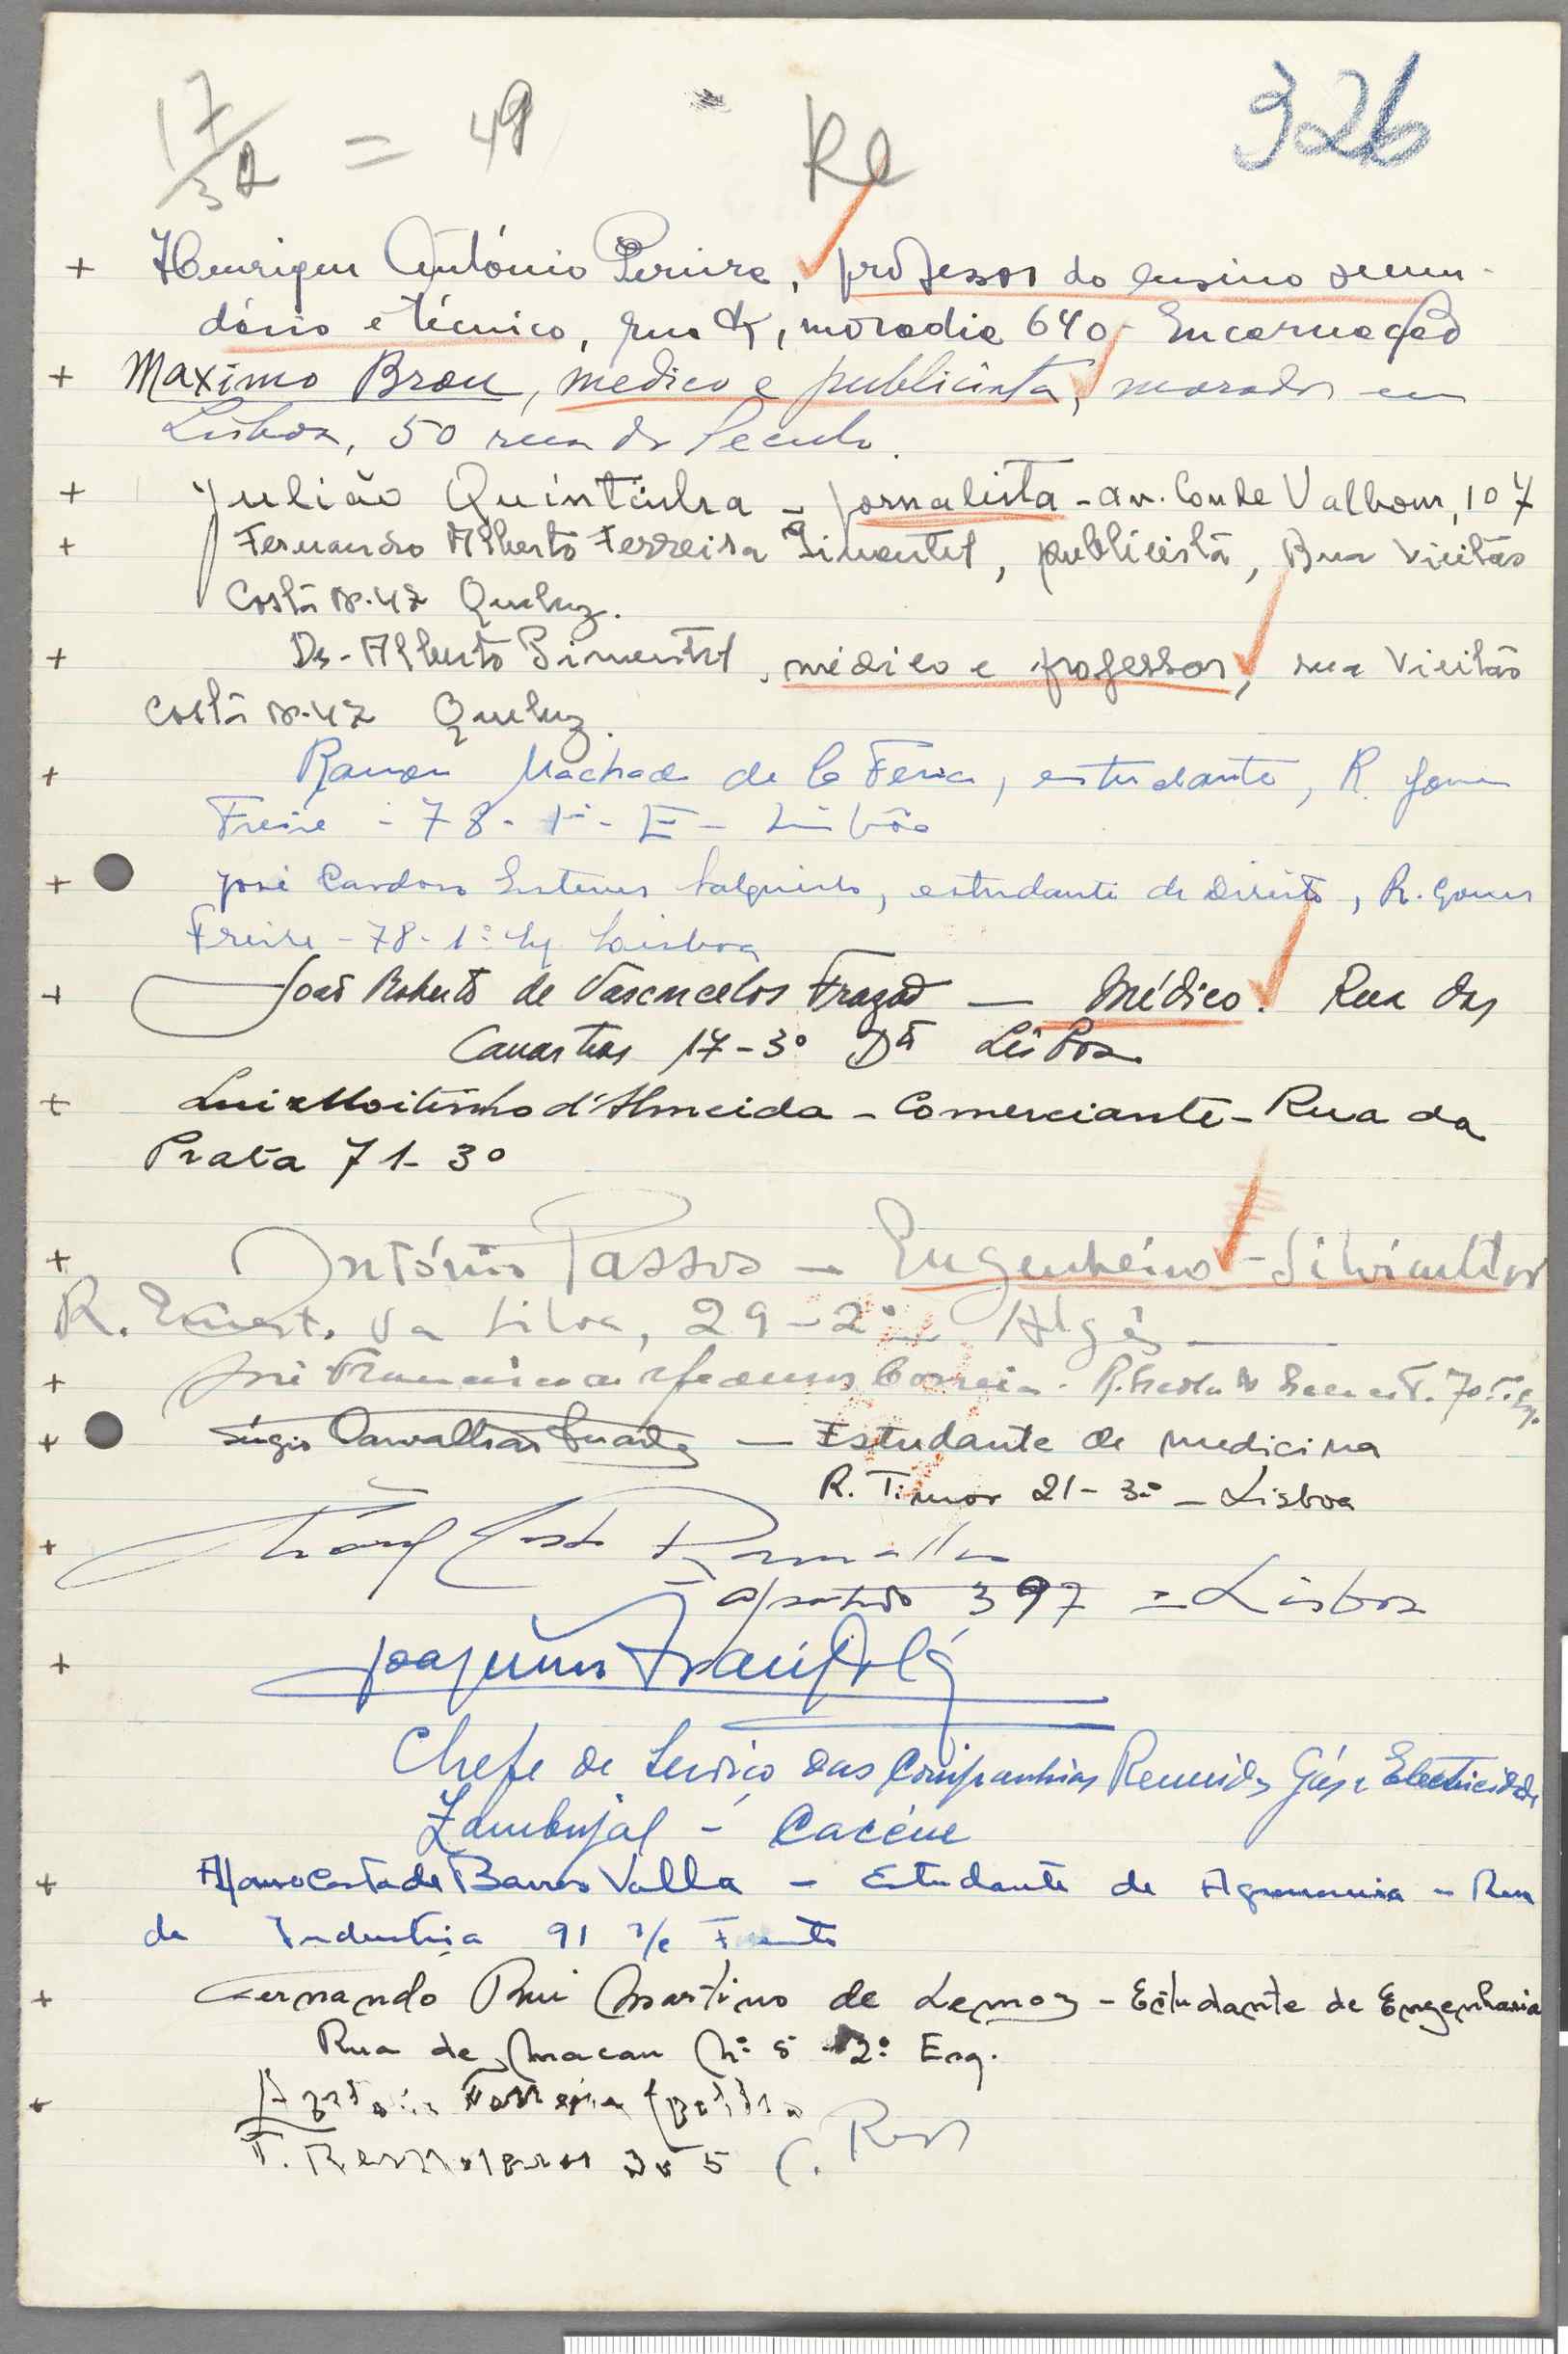 17/32 = 49 Re 326
+ Henrique António Pereira, professor do ensino secun-
dário e técnico, rua H, moradia 640 - Encarnação
+ Maximo Brou, medico e publicista, morador em
Lisboa, 50 rua do Seculo.
+ Julião Quintinha - jornalista - av. Conde Valbom, 107
+ Fernando Alberto Ferreira Pimentel, publicista, Rua Vieitas
Costa nº 47 Queluz.
+ Dr. Alberto Pimentel, médico e professor, rua Vieitas
Costa nº 47 Queluz.
+ Ramon Machado de la Feria, estudante, R. Gomes
Freire - 78 - 1º - E - Lisboa
+ José Cardoso Salgueiro, estudante de Direito, R. Gomes
Freire - 78 - 1º Esq Lisboa
+ João Roberto de Vasconcelos Frazão — Médico. Rua das
Canastras 17 - 3º Dtº Lisboa
+ Luiz Moitinho d'Almeida - Comerciante - Rua da
Prata 71 - 3º
+ António Passos - Engenheiro - Silvicultor
R. Ernest. da Silva, 29 - 2º - Algés
+ José Francisco Correia - R.
+ Sérgio Carvalhão Duarte — Estudante de medicina
R. Timor 21 - 3º - Lisboa
+ Costa Ramalho
apartado 397 = Lisboa
+ Joaquim
Chefe de Serviço das Companhias Reunidas Gás e Electricidade
Zambujal - Cacém
+ Afonso Costa de Barros Valla - Estudante de Agronomia - Rua
da Industria 91 r/c Frente
+ Fernando Rui Martins de Lemos - Estudante de Engenharia
Rua de Macau Nº 5 - 2º Esq.
+ António Ferreira
T. 5 C.